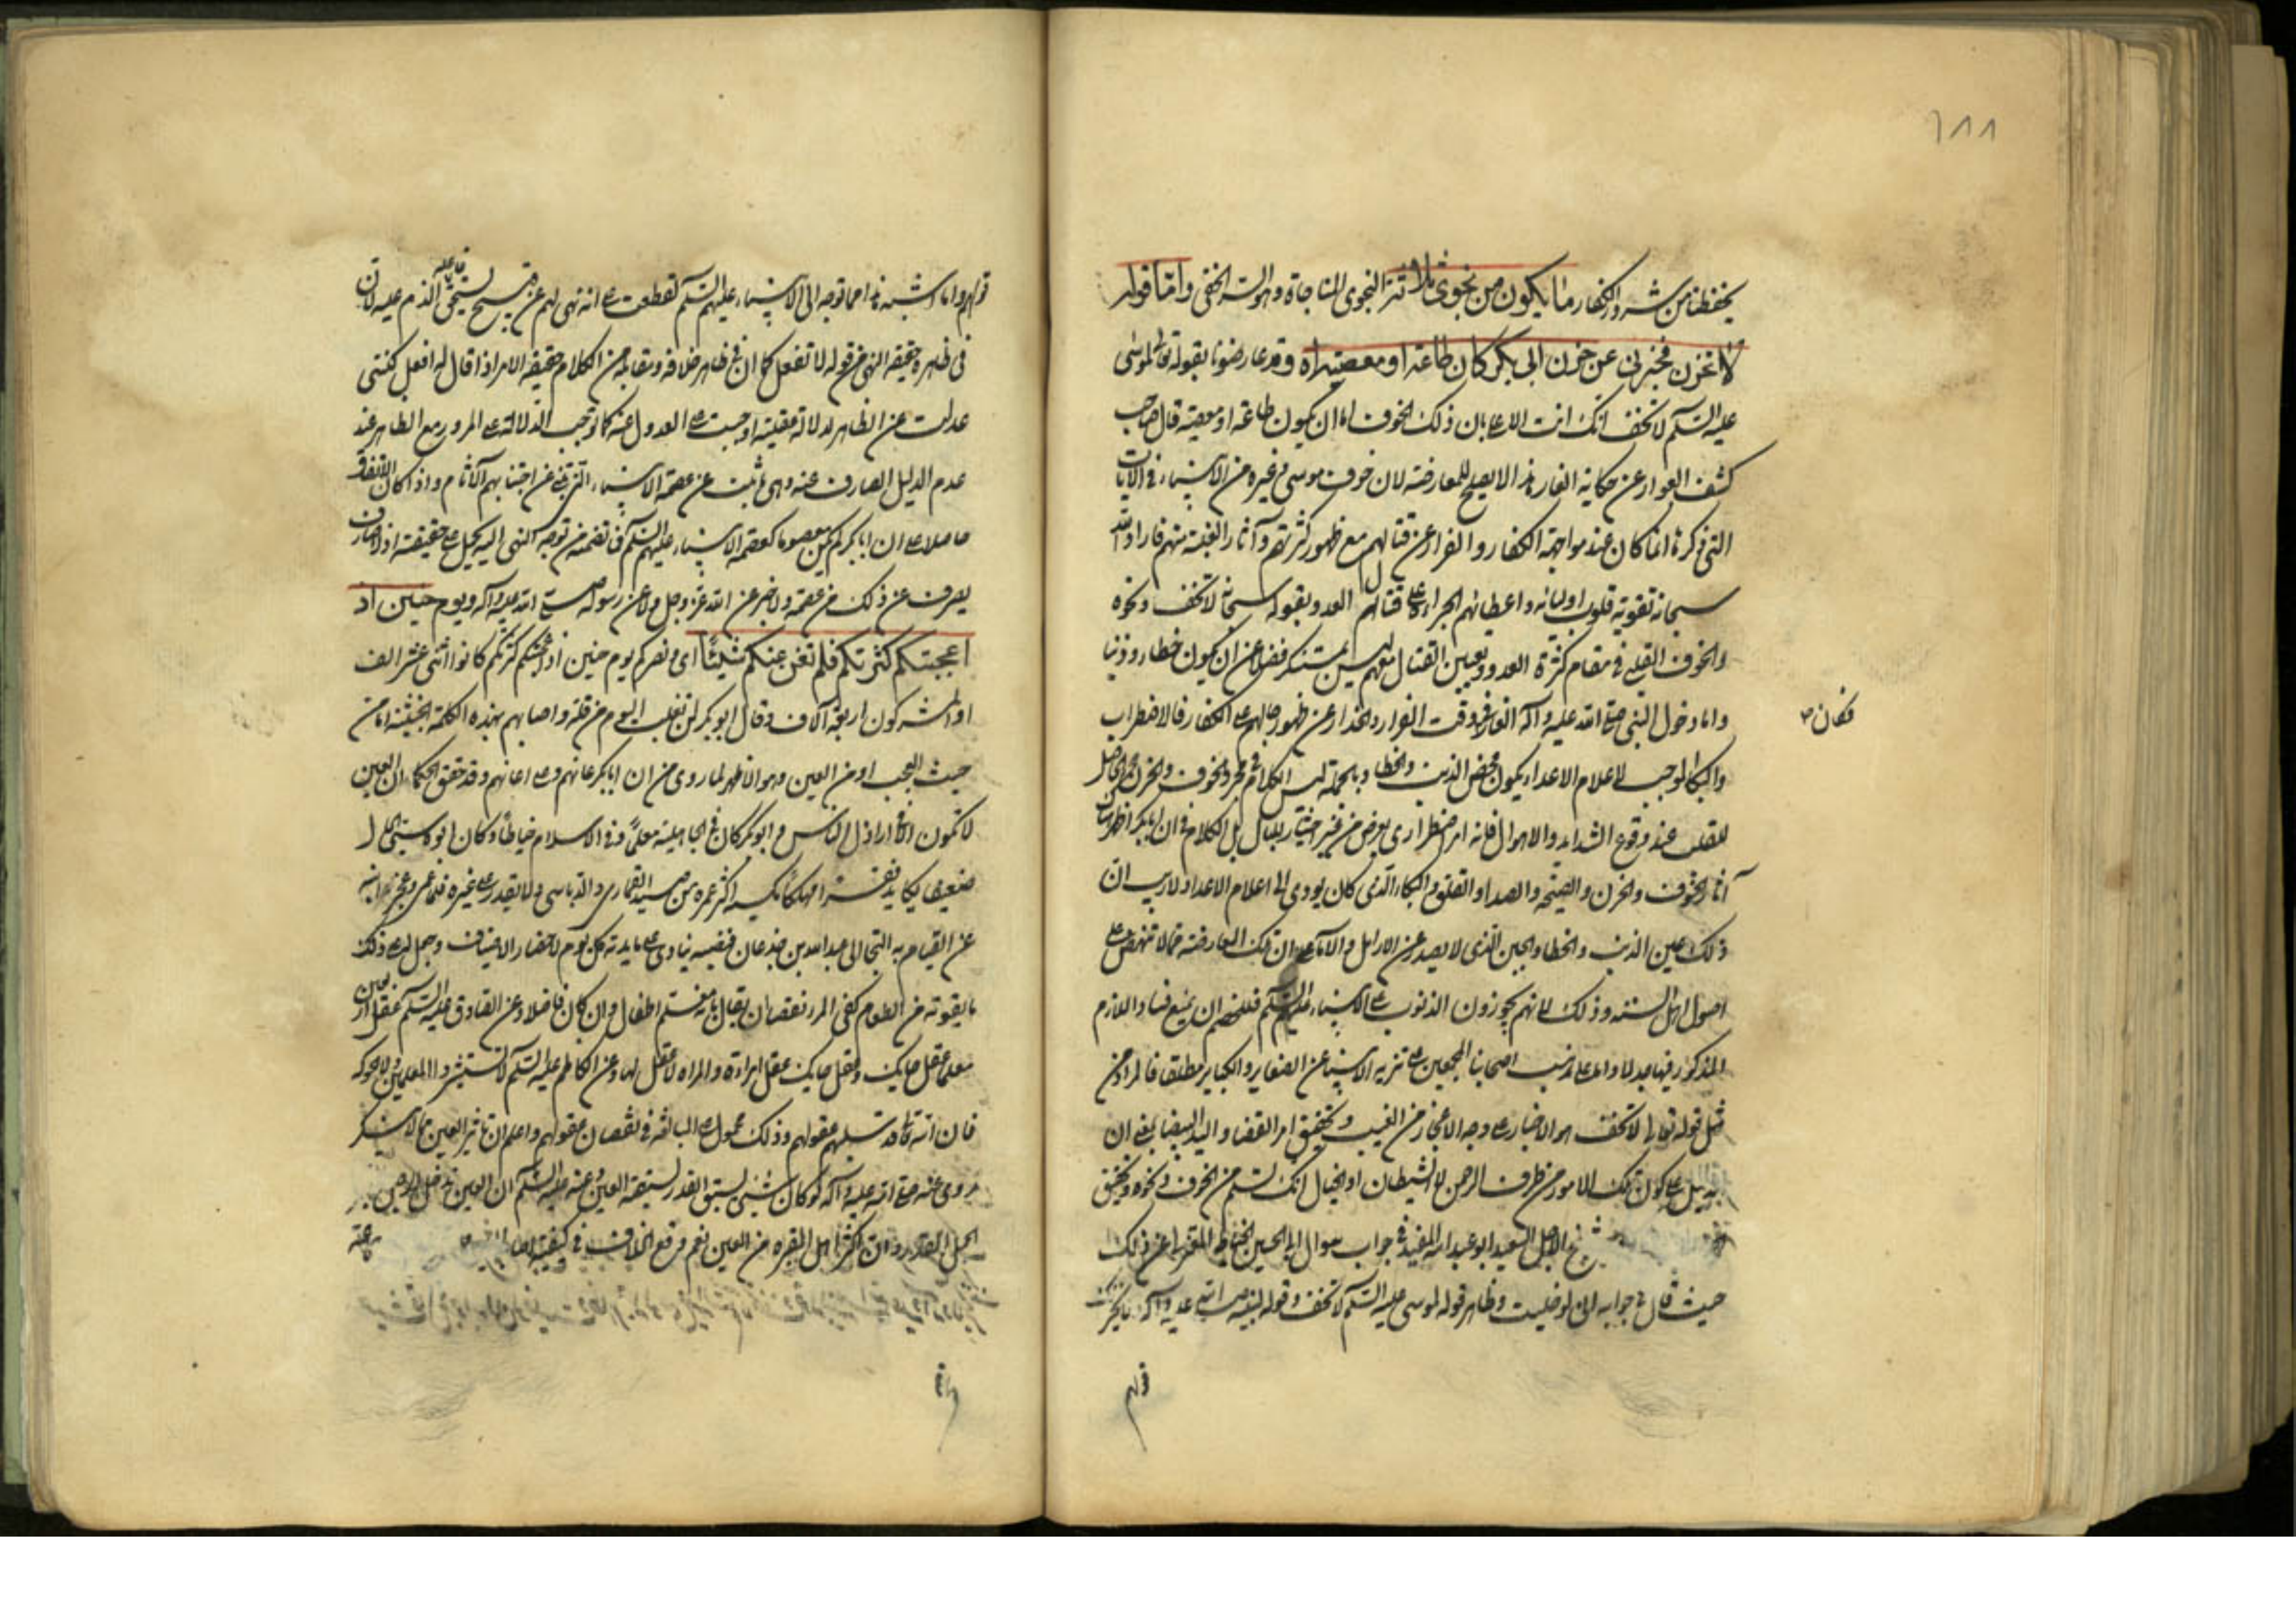 ١٨٨
يحفظنا من شرور الكفار ما يكون من نجوى ثلاثة النجوى المناجاة وهو السر الخفى واما قوله
لا تحزن فخبرنى عن حزن ابى بكر كان طاعة او معصية اه وقد عارضونا بقوله تعالى لموسى
عليه السلم لا تخف انك انت الاعلى بان ذلك الخوف اما ان يكون طاعة او معصية قال صاحب
كشف العوار عن حكاية الغار هذا لا يصلح للمعارضة لان خوف موسى وغيره من الانبياء فى الآيات
التى ذكرنا انما كان عند مواجهة الكفار والفرار عن قتالهم مع ظهور كثرتهم وآثار الغلبة منهم فاراد الله
سبحانه تقوية قلوب اوليائه واعطائهم الجراءة على قتال العدو بقوله سبحانه لا تخف ونحوه
والخوف القلبى فى مقام كثرة العدو وتعيين القتال معهم ليس بمستنكر فضلا عن ان يكون خطاء وذنبا
واما دخول النبى صلى الله عليه وآله الغار وقت الفرار والحذار عن ظهور حالهم على الكفار فالاضطراب
فكان
والبكاء الموجب لاعلام الاعداء يكون محض الذنب والخطا وبالجملة ليس الكلام فى مجرد الخوف والحزن الحاصل
للقلب عند وقوع الشدايد والاهوال فانه امر اضطرارى يعرض من غير اختيار بل الكلام فى ان ابا بكر اظهر من
آثار الخوف والحزن والصيحة والصدا والقلق والبكاء الذى كان يودى الى اعلام الاعداء ولا ريب ان
ذلك عين الذنب والخطا والجبن الذى لا يصدر عن الاراذل والآحاد ان تلك المعارضة مما لا تنهض على
اصول اهل السنة وذلك لانهم يجوزون الذنوب على الانبياء عليهم السلم فللخصم ان يمنع فساد اللازم
المذكور فيها جدلا واما على مذهب اصحابنا المجمعين على تنزيه الانبياء عن الصغاير والكباير مطلقا فالمراد من
مثل قوله تعالى لا تخف هو الاخبار على وجه الاعجاز من الغيب وتحقيق امر القضاء واليد البيضاء بمعنى ان
بدليل على كون تلك الامور من طرف الرحمن لا الشيطان او الخيال انك تسلم من الخوف ونحوه وتحقيق
الشيخ الاجل السعيد ابو عبد الله المفيد فى جواب سوال ابى الحسين الخياط المعتزلى عن ذلك
حيث قال فى جوابه انى لو خليت وظاهر قوله لموسى عليه السلم لا تخف وقوله لنبيه صلى الله عليه وآله لا يحزنك
قولهم
قولهم واما اشبه هذا مما توجه الى الانبياء عليهم السلم لقطعت على انه نهى لهم عن قبيح يستحق فاعله الذم عليه لان
فى ظاهره حقيقة النهى من قوله لا تفعل كما ان فى ظاهر خلافه ومقابله من الكلام حقيقة الامر اذا قال له افعل لكننى
عدلت عن الظاهر لدلالة عقلية اوجبت على العدول عنه كما توجب الدلالة على المرور مع الظاهر عند
عدم الدليل الصارف عنه وهى ما ثبت عن عصمة الانبياء التى تنبئ عن اجتنابهم الآثام واذا كان الاتفاق
حاصلا على ان ابا بكر لم يكن معصوما كعصمة الانبياء عليهم السلم فما تضمنه من توجه النهى اليه يحمل على حقيقته اذ لا صارف
يصرف عن ذلك من عصمة ولا خبر عن الله عز وجل ولا عن رسوله صلى الله عليه وآله ويوم حنين اذ
اعجبتكم كثرتكم فلم تغن عنكم شيئا اى ونصركم يوم حنين اذ اعجبتكم كثرتكم كانوا اثنى عشر الف
او المشركون اربعة آلاف وقال ابو بكر لن نغلب اليوم من قلة واصابهم بهذه الكلمة الخبيثة اما من
حيث العجب او من العين وهو الاظهر لما روى من ان ابا بكر عانهم وما اعانهم وقد حقق الحكماء ان العين
لا تكون الا فى اراذل الناس وابو بكر كان فى الجاهلية معلما وفى الاسلام خياطا وكان ابوه سيئ الحال
ضعيفا يكابد فقرا مهلكا يكسب اكثر عمره من صيد القمارى والدباسى ولا يقدر على غيره فلما عمى وعجز ابنه
عن القيام به التجا الى عبد الله بن جدعان فنصبه ينادى على مايدته كل يوم لاحضار الاضياف وجعل له على ذلك
ما يقوته من الطعام كفى المرء نقصا ان يقال معلم اطفال وان كان فاضلا وعن الصادق عليه السلم عقل اربعين
معلما عقل حايك وعقل حايك عقل امراءة والمراه لا عقل لها وعن الكاظم عليه السلم لا تستشيروا المعلمين ولا الحوكه
فان الله تعالى قد سلبهم عقولهم وذلك محمول على المبالغة فى نقصان عقولهم واعلم ان تاثير العين مما لا ينكر
روى عنه صلى الله عليه وآله لو كان شئ يسبق القدر لسبقته العين وعنه عليه السلم ان العين تدخل الرجل القبر
الجمل القدر وان اكثر اهل المقبره من العين نعم وقع الخلاف فى كيفية